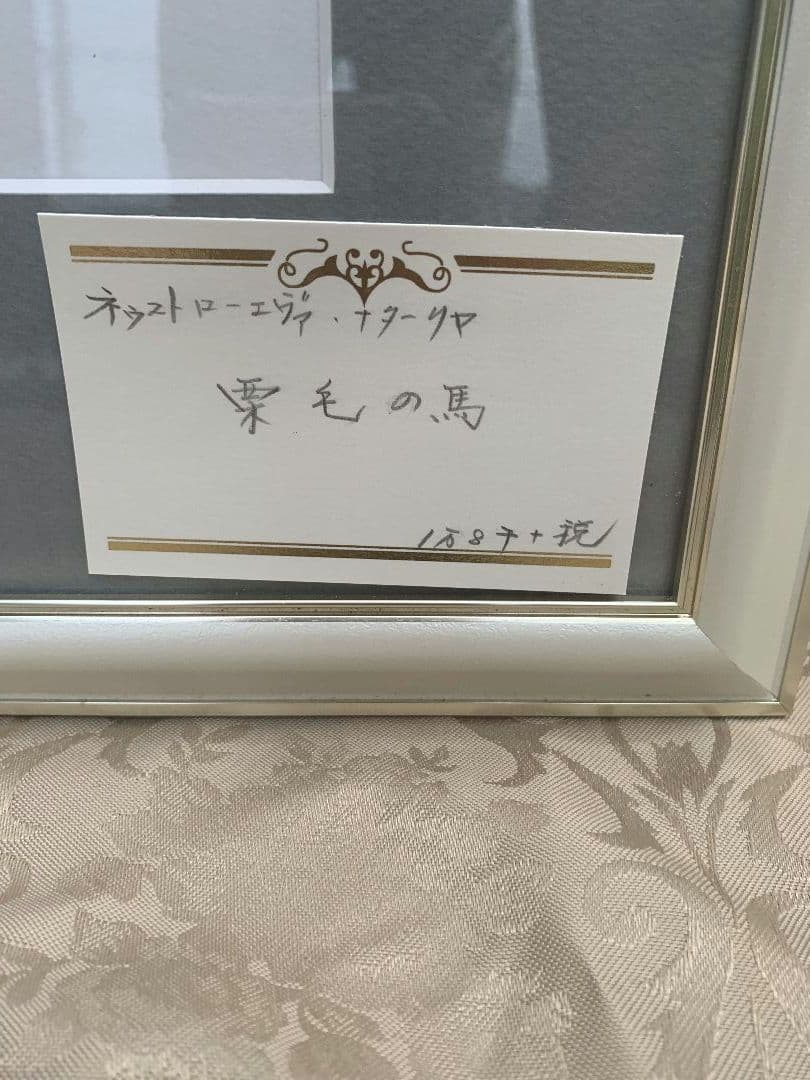 ネウストローエヴァ・ナターリヤ
栗毛の馬
1万8千+税